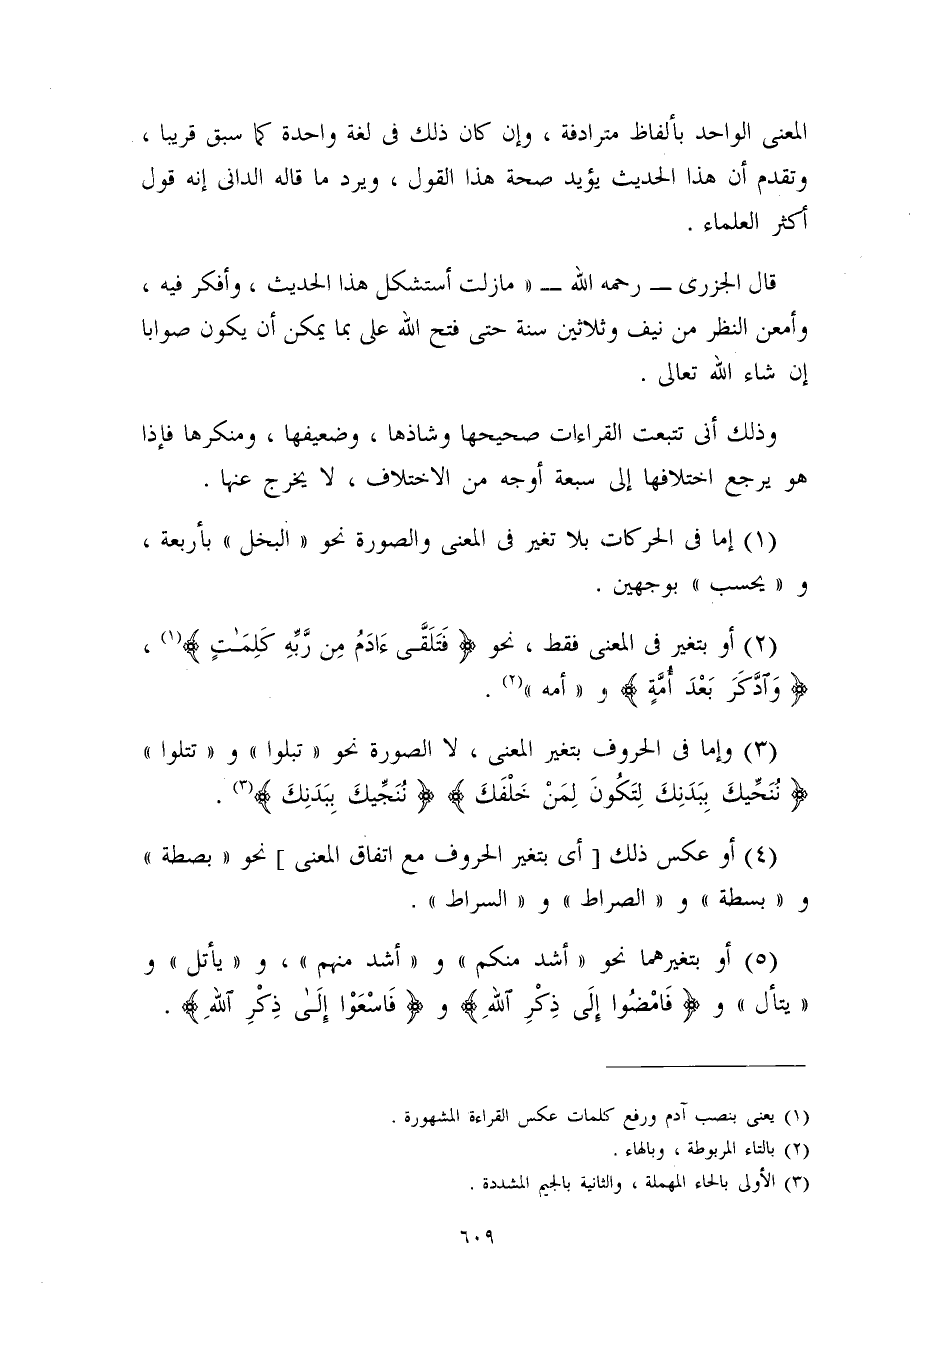 المعنى الواحد بألفاظ مترادفة ، وإن كان ذلك فى لغة واحدة كما سبق قريبا ،
وتقدم أن هذا الحديث يؤيد صحة هذا القول ، ويرد ما قاله الدانى إنه قول
أكثر العلماء .
قال الجزرى ــ رحمه الله ــ « مازلت أستشكل هذا الحديث ، وأفكر فيه ،
وأمعن النظر من نيف وثلاثين سنة حتى فتح الله على بما يمكن أن يكون صوابا
إن شاء الله تعالى .
وذلك أنى تتبعت القراءات صحيحها وشاذها ، وضعيفها ، ومنكرها فإذا
هو يرجع اختلافها إلى سبعة أوجه من الاختلاف ، لا يخرج عنها .
(١) إما فى الحركات بلا تغير فى المعنى والصورة نحو « البخل » بأربعة ،
و « يحسب » بوجهين .
(٢) أو بتغير فى المعنى فقط ، نحو ﴿ فَتَلَقَّـى ءَادَمُ مِن رَّبِّهِ كَلِمَـٰتٍ ﴾(١) ،
﴿ وَٱدَّكَرَ بَعْدَ أُمَّةٍ ﴾ و « أمه »(٢) .
(٣) وإما فى الحروف بتغير المعنى ، لا الصورة نحو « تبلوا » و « تتلوا »
﴿ نُنَحِّيكَ بِبَدَنِكَ لِتَكُونَ لِمَنْ خَلْفَكَ ﴾ ﴿ نُنَجِّيكَ بِبَدَنِكَ ﴾(٣) .
(٤) أو عكس ذلك [ أى بتغير الحروف مع اتفاق المعنى ] نحو « بصطة »
و « بسطة » و « الصراط » و « السراط » .
(٥) أو بتغيرهما نحو « أشد منكم » و « أشد منهم » ، و « يأتل » و
« يتأل » و ﴿ فَامْضُوا إِلَى ذِكْرِ ٱللَّهِ ﴾ و ﴿ فَاسْعَوْا إِلَـٰى ذِكْرِ ٱللَّهِ ﴾ .
(١) يعنى بنصب آدم ورفع كلمات عكس القراءة المشهورة .
(٢) بالتاء المربوطة ، وبالهاء .
(٣) الأولى بالحاء المهملة ، والثانية بالجيم المشددة .
٦٠٩